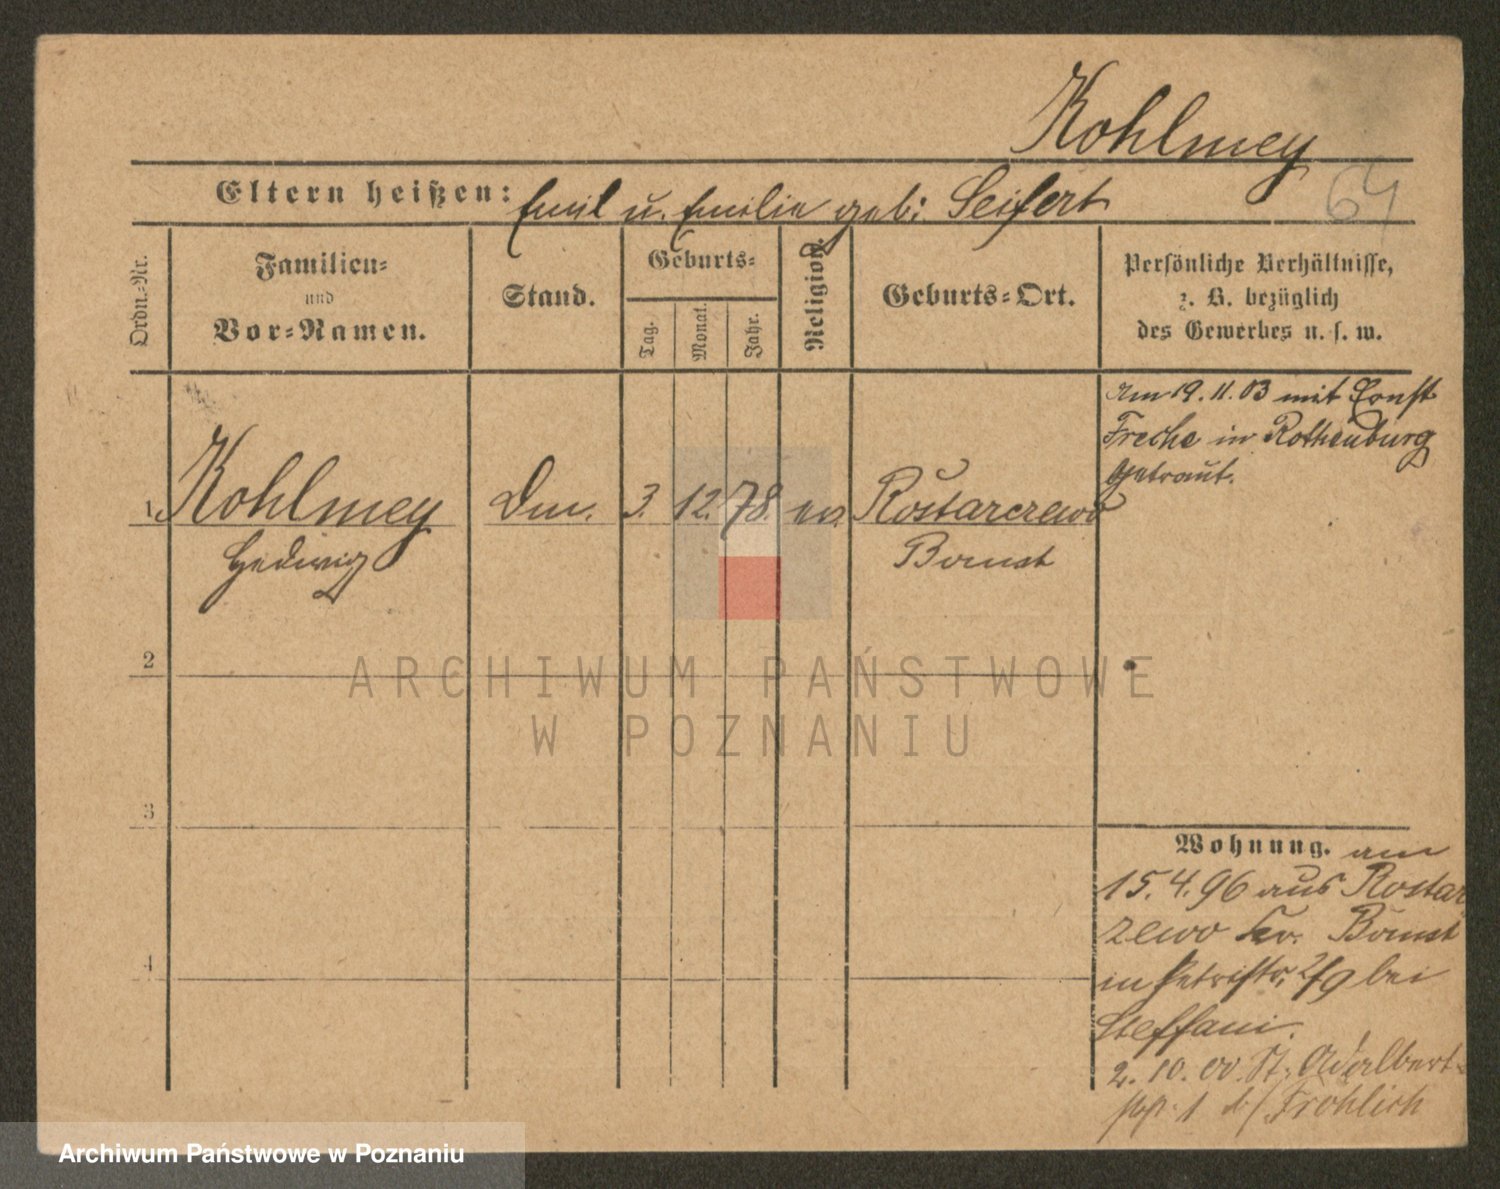 Kohlmey
64
Eltern heißen: Emil u. Emilie geb: Seifert
Ordn.=Nr.
Familien=
und
Vor=Namen.
Stand.
Geburts=
Tag.
Monat.
Jahr.
Religion.
Geburts=Ort.
Persönliche Verhältnisse,
z. B. bezüglich
des Gewerbes u. s. w.
am 19. 11. 03 mit Ernst
Freche in Rothenburg
getraut.
1. Kohlmey 3. 12. 78. ev. Rostarczewo
Hedwig Bomst
2
3
4
Wohnung. am
15. 4. 96 aus Rostar
zewo Kr. Bomst
in Petristr. 2/9 bei
Steffani.
2. 10. 00. St. Adalbert=
1 b/ Fröhlich
ARCHIWUM PAŃSTWOWE
W POZNANIU
Archiwum Państwowe w Poznaniu